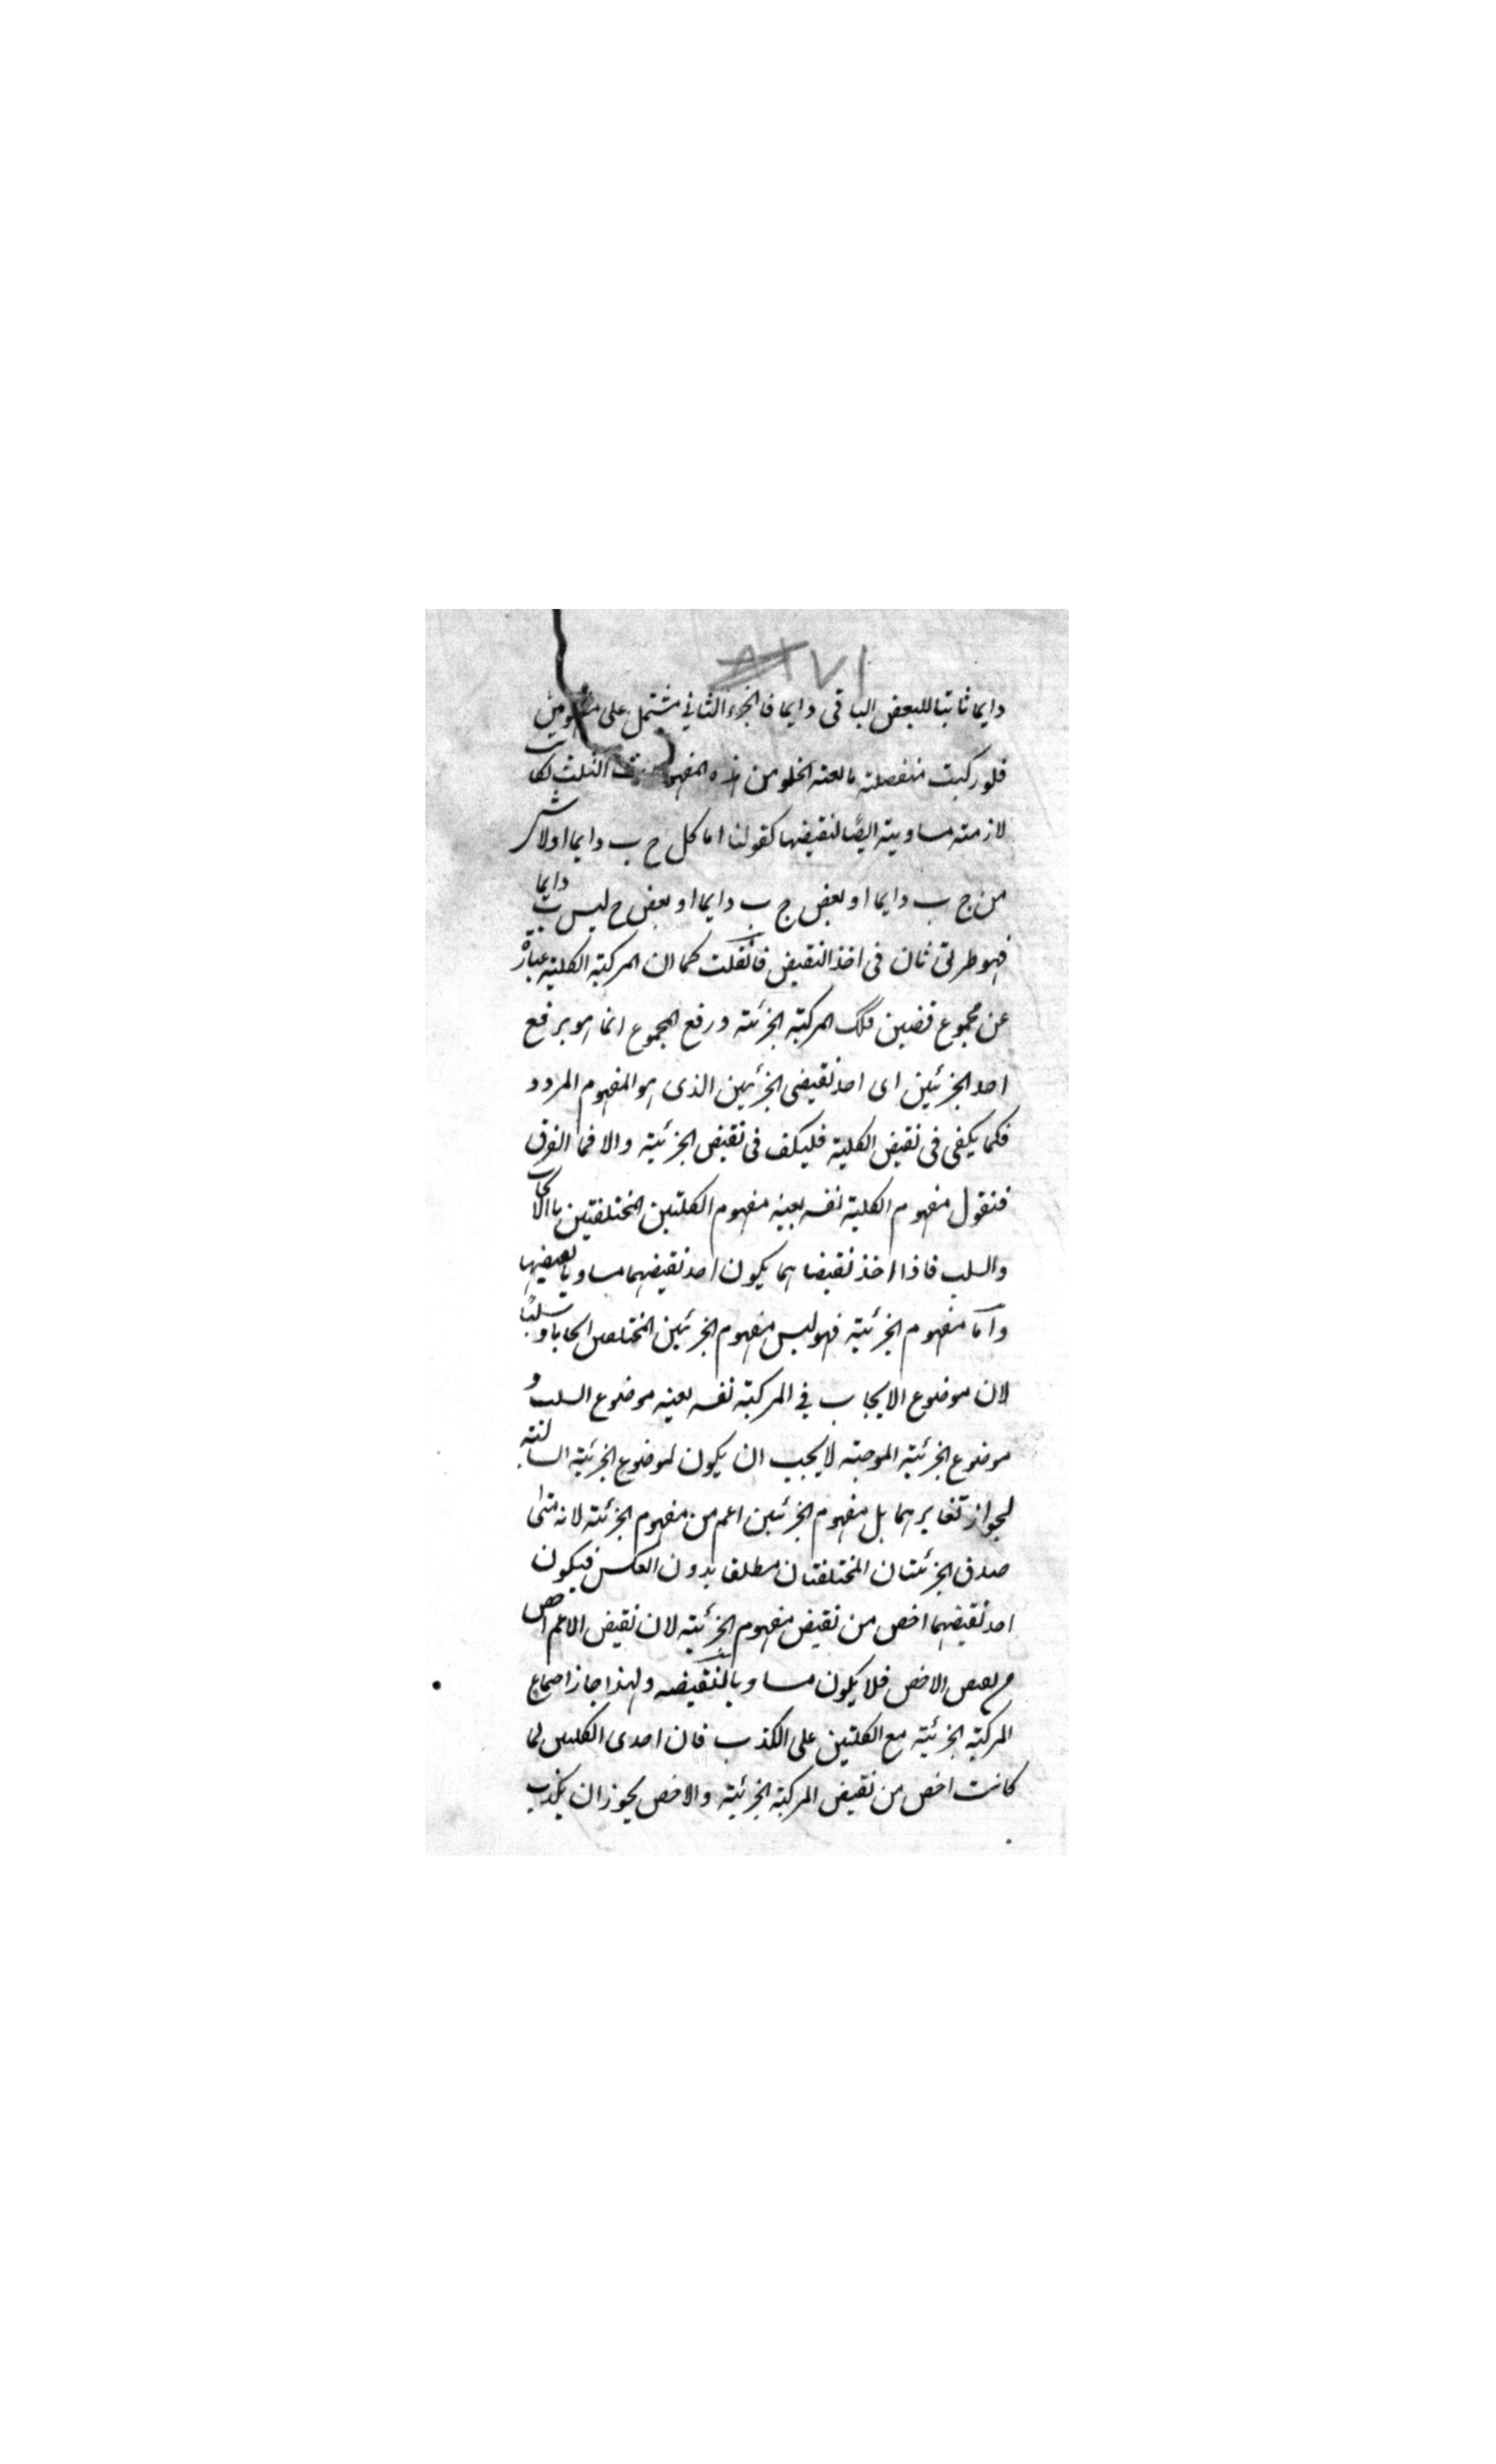 ١٧١
دايما ثابتا للبعض الباقى دايما فالجزء الثاني مشتمل على مفهومين
فلو ركبت منفصلة مانعة الخلو من هذه المفهومات الثلث لكانت
لازمة مساوية ايضًا لنقيضها كقولنا اما كل ج ب دايما اولا شى
من ج ب دايما او بعض ج ب دايما او بعض ج ليس ب دايما
فهو طريق ثان فى اخذ النقيض فان قلت كما ان المركبة الكلية عبارة
عن مجموع قضيتين فكذلك المركبة الجزئية ورفع المجموع انما هو برفع
احد الجزئين اى احد نقيضى الجزئين الذى هو المفهوم المردد
فكما يكفى فى نقيض الكلية فليكف فى نقيض الجزئية والا فما الفرق
فنقول مفهوم الكلية نفسه بعينه مفهوم الكليتين المختلفتين بالايجاب
والسلب فاذا اخذ نقيضاهما يكون احد نقيضيهما مساويا لنقيضها
واما مفهوم الجزئية فهو ليس مفهوم الجزئيتين المختلفتين ايجابا وسلبًا
لان موضوع الايجاب في المركبة نفسه بعينه موضوع السلب و
موضوع الجزئية الموجبة لا يجب ان يكون موضوع الجزئية السالبة
لجواز تغايرهما بل مفهوم الجزئيتين اعم من مفهوم الجزئية لانه متى
صدق الجزئيتان المختلفتان مطلقا بدون العكس فيكون
احد نقيضيهما اخص من نقيض مفهوم الجزئية لان نقيض الاعم اخص
من نقيض الاخص فلا يكون مساويا لنقيضه ولهذا جاز اجتماع
المركبة الجزئية مع الكليتين على الكذب فان احدى الكليتين لما
كانت اخص من نقيض المركبة الجزئية والاخص يجوز ان يكذب